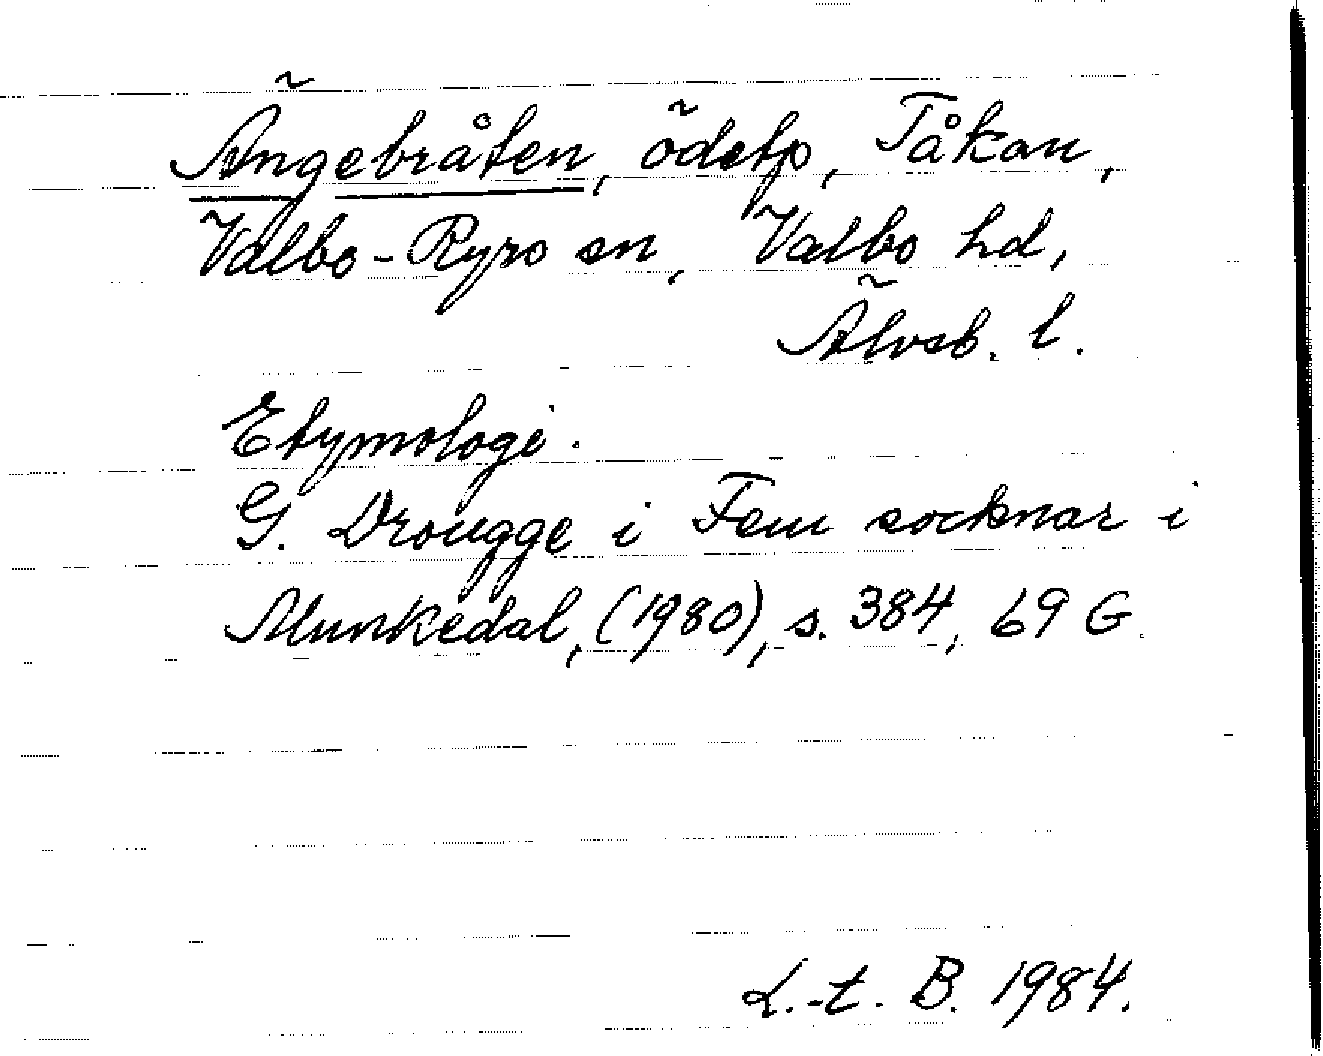 Ängebråten, ödetp, Tåkan,
Valbo-Ryrs sn, Valbo hd,
Älvsb. l.
Etymologi.
G. Drougge i Fem socknar i
Munkedal, (1980), s. 384, 69 G.
L.-t. B. 1984.